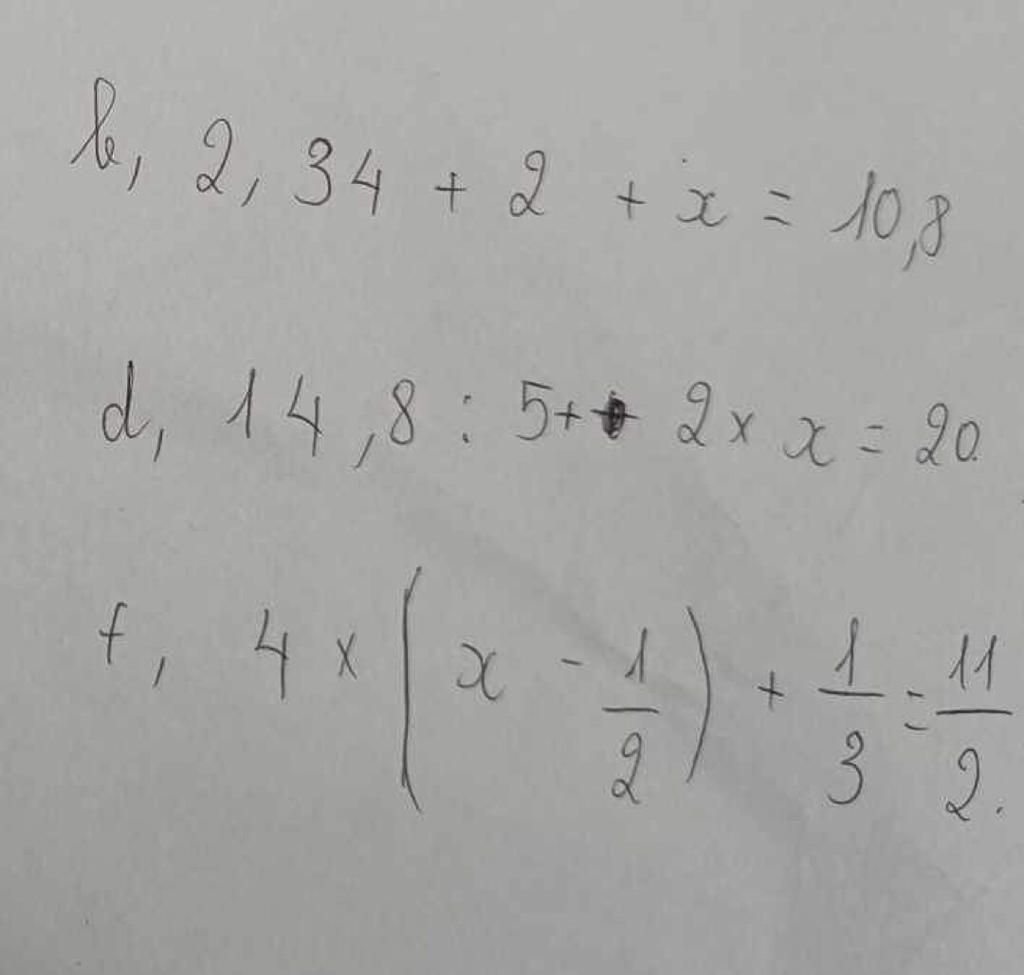 b, 2,34 + 2 + x = 10,8
d, 14,8 : 5 + 2 × x = 20.
f, 4 × ( x - 1/2 ) + 1/3 = 11/2.